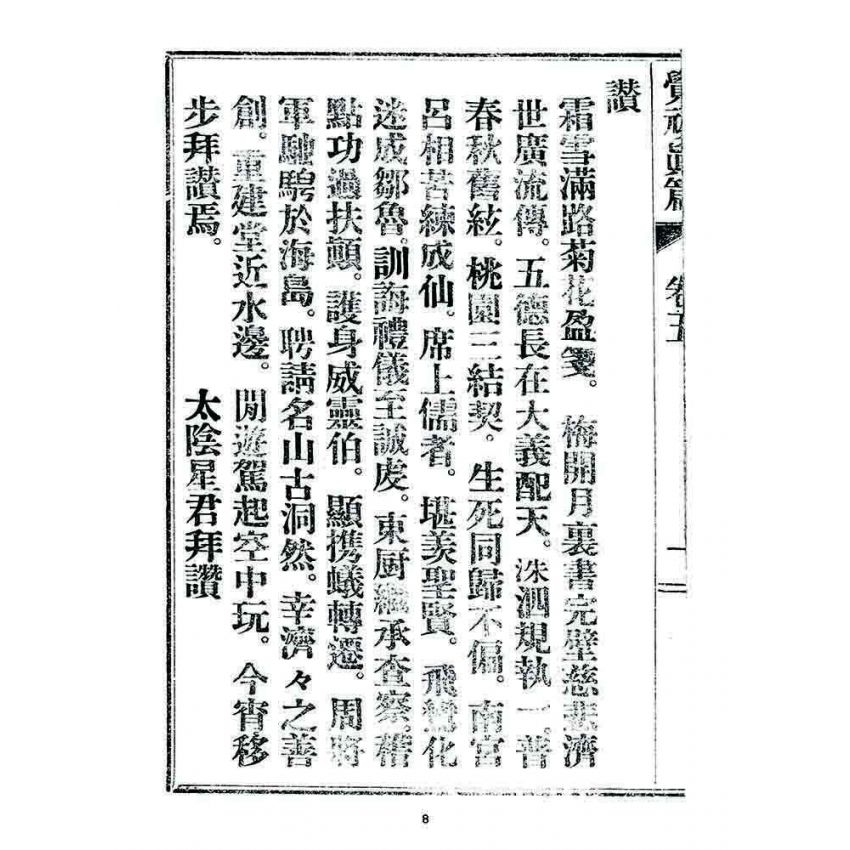 篇 卷五 一
讃
霜雪滿路菊花盈箋。梅開月裏書完璧慈悲濟
世廣流傳。五德長在大義配天。洙泗規執一。普
春秋舊絃。桃園三結契。生死同歸不偏。南宮
呂相苦練成仙。席上儒者。堪羡聖賢。飛鸞化
迷成鄒魯。訓誨禮儀至誠虔。東厨繼承查察。稽
點功過扶顛。護身威靈伯。顯携蟻轉遷。周將
軍馳騁於海島。聘請名山古洞然。幸濟々之善
創。重建堂近水邊。閒遊駕起空中玩。今宵移
步拜讃焉。 太陰星君拜讚
8